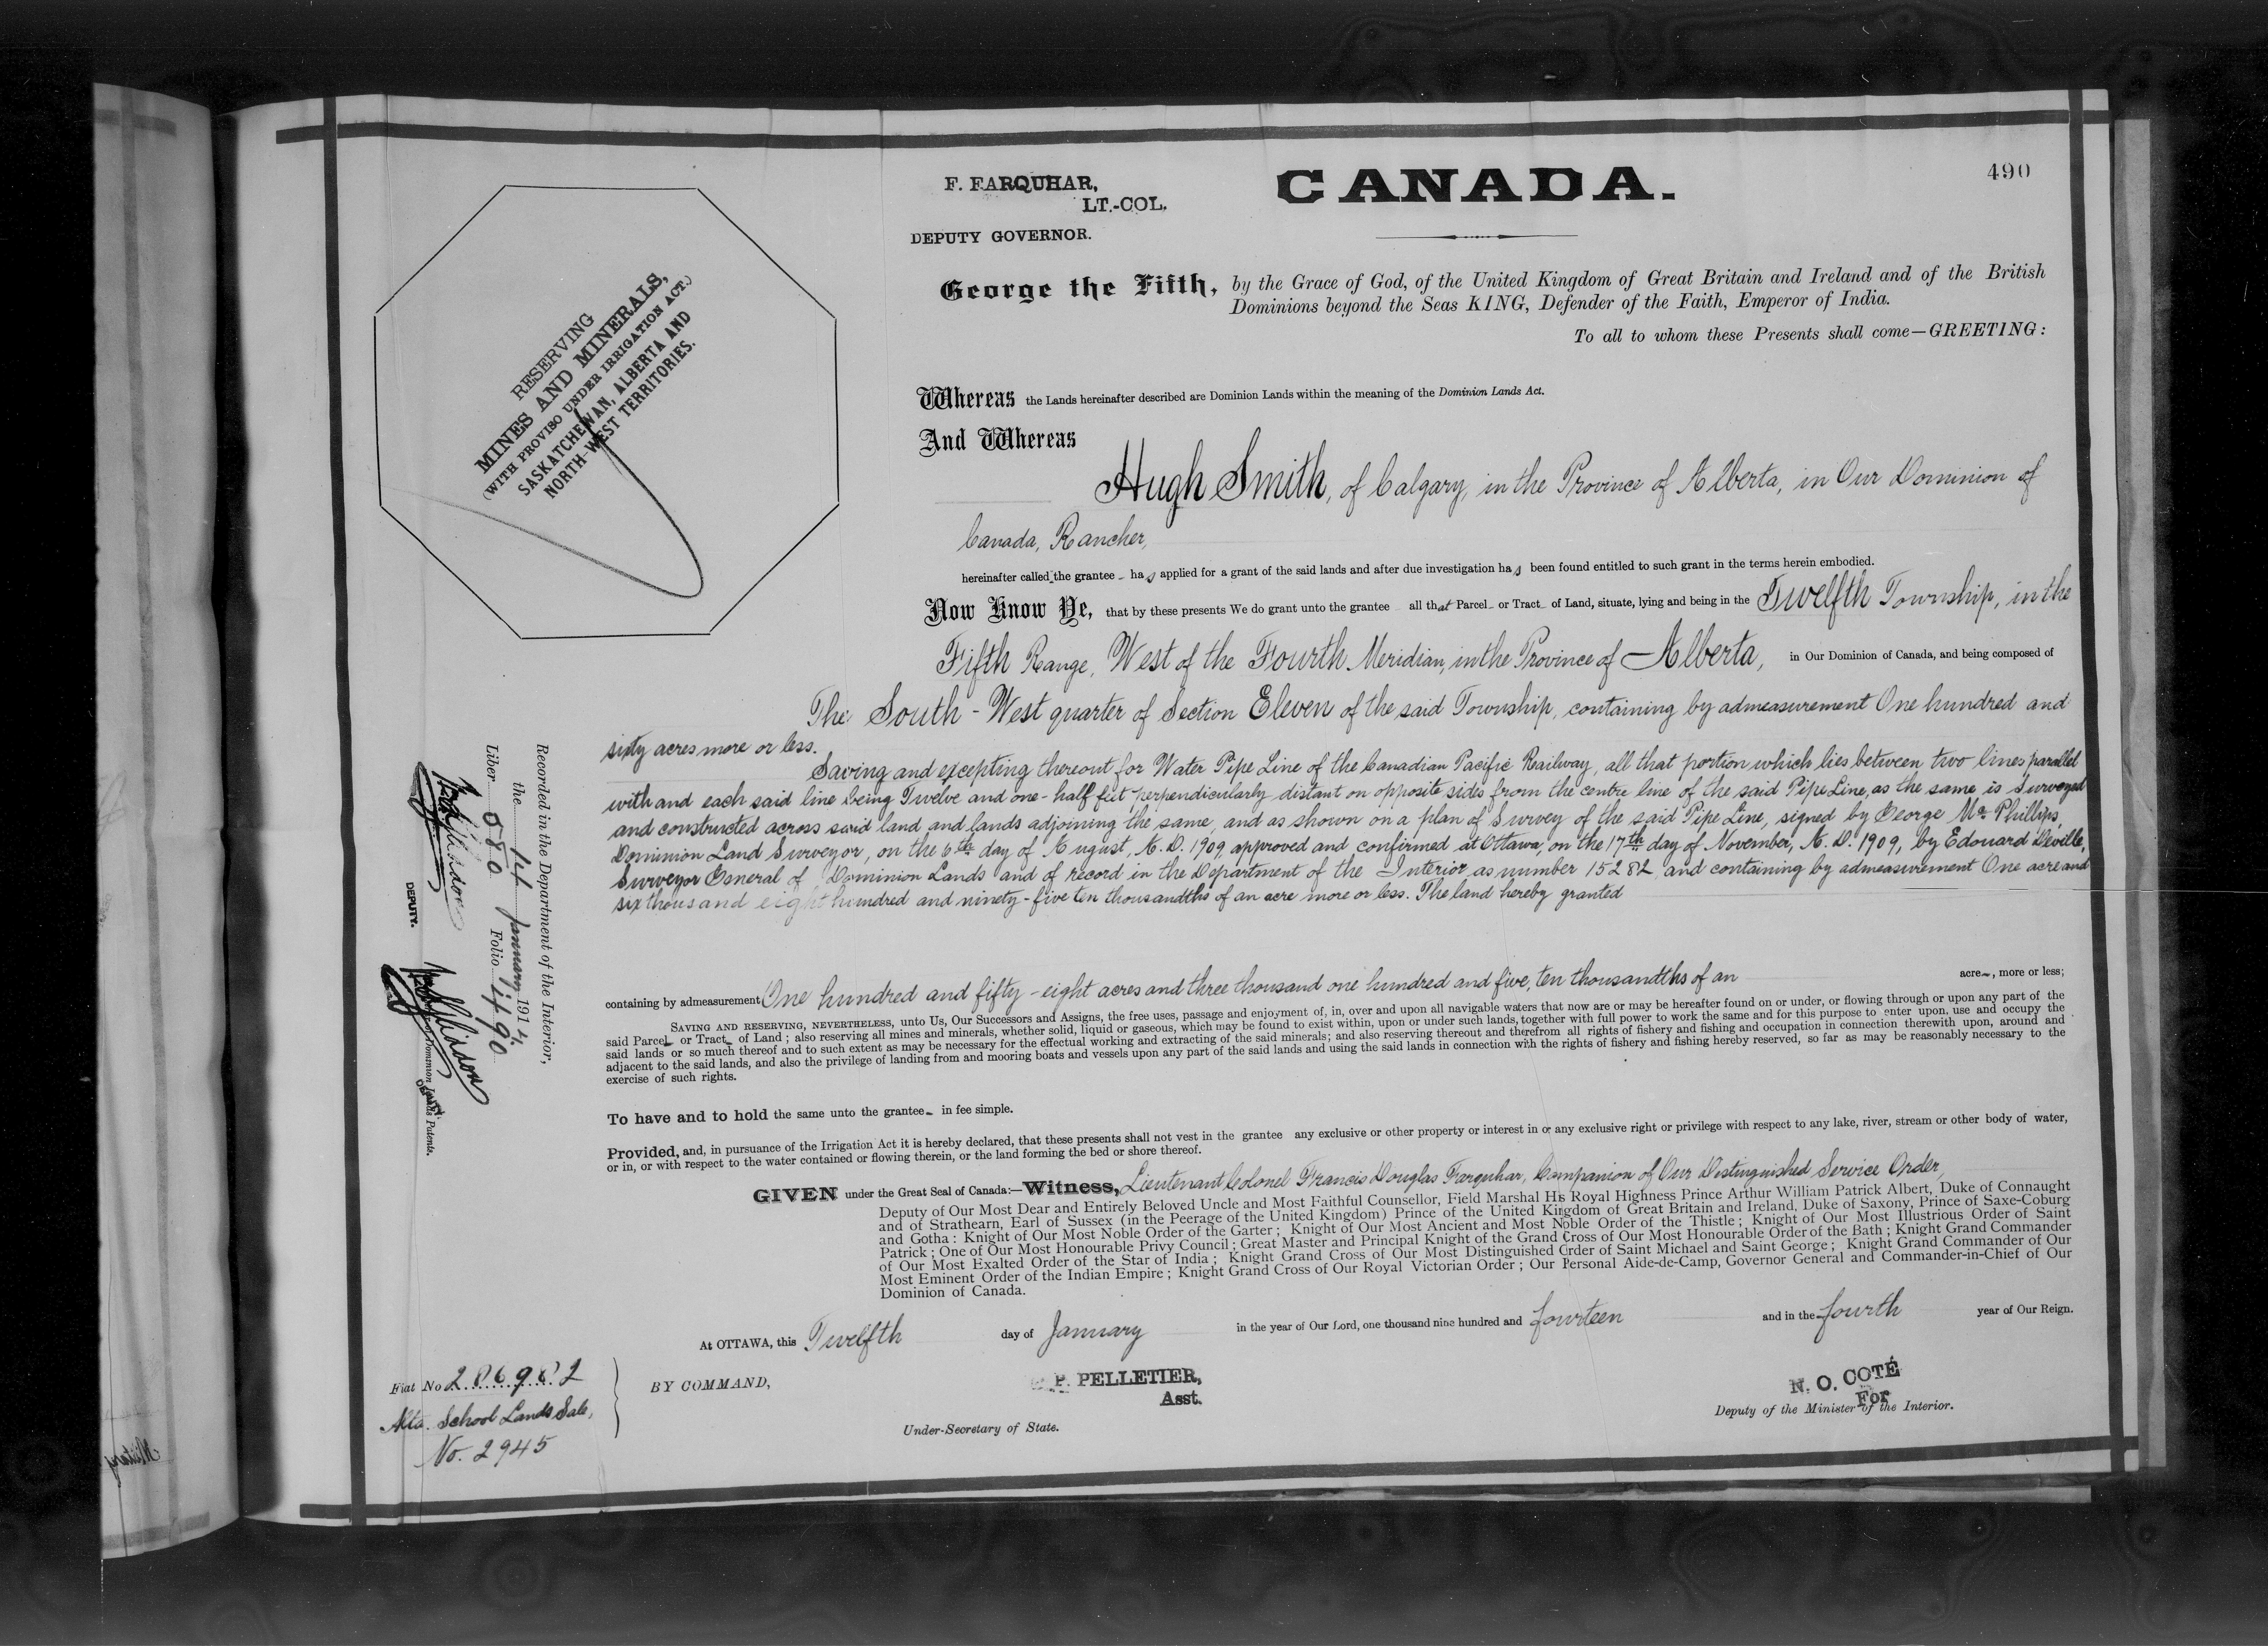 490
F. FARQUHAR,
LT.-COL.
DEPUTY GOVERNOR.
CANADA.
George the Fifth, by the Grace of God, of the United Kingdom of Great Britain and Ireland and of the British
Dominions beyond the Seas KING, Defender of the Faith, Emperor of India.
To all to whom these Presents shall come—GREETING:
RESERVING
MINES AND MINERALS,
(WITH PROVISO UNDER IRRIGATION ACT.)
SASKATCHEWAN, ALBERTA AND
NORTH-WEST TERRITORIES.
Whereas the Lands hereinafter described are Dominion Lands within the meaning of the Dominion Lands Act.
And Whereas
Hugh Smith, of Calgary, in the Province of Alberta, in Our Dominion of
Canada, Rancher,
hereinafter called the grantee has applied for a grant of the said lands and after due investigation has been found entitled to such grant in the terms herein embodied.
Now Know Ye, that by these presents We do grant unto the grantee all that Parcel or Tract of Land, situate, lying and being in the Twelfth Township, in the
Fifth Range, West of the Fourth Meridian, in the Province of Alberta, in Our Dominion of Canada, and being composed of
The South-West quarter of Section Eleven of the said Township, containing by admeasurement One hundred and
sixty acres more or less.
Saving and excepting thereout for Water Pipe Line of the Canadian Pacific Railway, all that portion which lies between two lines parallel
with and each said line being Twelve and one-half feet perpendicularly distant on opposite sides from the centre line of the said Pipe Line, as the same is surveyed
and constructed across said land and lands adjoining the same, and as shown on a plan of Survey of the said Pipe Line, signed by George Mc Phillips,
Dominion Land Surveyor, on the 6th day of August, A. D. 1909, approved and confirmed at Ottawa, on the 17th day of November, A. D. 1909, by Edouard Deville,
Surveyor General of Dominion Lands and of record in the Department of the Interior as number 15282 and containing by admeasurement One acre and
six thousand eight hundred and ninety-five ten thousandths of an acre more or less. The land hereby granted
containing by admeasurement One hundred and fifty-eight acres and three thousand one hundred and five, ten thousandths of an acre, more or less;
SAVING AND RESERVING, NEVERTHELESS, unto Us, Our Successors and Assigns, the free uses, passage and enjoyment of, in, over and upon all navigable waters that now are or may be hereafter found on or under, or flowing through or upon any part of the
said Parcel or Tract of Land; also reserving all mines and minerals, whether solid, liquid or gaseous, which may be found to exist within, upon or under such lands, together with full power to work the same and for this purpose to enter upon, use and occupy the
said lands or so much thereof and to such extent as may be necessary for the effectual working and extracting of the said minerals; and also reserving thereout and therefrom all rights of fishery and fishing and occupation in connection therewith upon, around and
adjacent to the said lands, and also the privilege of landing from and mooring boats and vessels upon any part of the said lands and using the said lands in connection with the rights of fishery and fishing hereby reserved, so far as may be reasonably necessary to the
exercise of such rights.
To have and to hold the same unto the grantee in fee simple.
Provided, and, in pursuance of the Irrigation Act it is hereby declared, that these presents shall not vest in the grantee any exclusive or other property or interest in or any exclusive right or privilege with respect to any lake, river, stream or other body of water,
or in, or with respect to the water contained or flowing therein, or the land forming the bed or shore thereof.
GIVEN under the Great Seal of Canada:—Witness, Lieutenant Colonel Francis Douglas Farquhar, Companion of Our Distinguished Service Order,
Deputy of Our Most Dear and Entirely Beloved Uncle and Most Faithful Counsellor, Field Marshal His Royal Highness Prince Arthur William Patrick Albert, Duke of Connaught
and of Strathearn, Earl of Sussex (in the Peerage of the United Kingdom) Prince of the United Kingdom of Great Britain and Ireland, Duke of Saxony, Prince of Saxe-Coburg
and Gotha: Knight of Our Most Noble Order of the Garter; Knight of Our Most Ancient and Most Noble Order of the Thistle; Knight of Our Most Illustrious Order of Saint
Patrick; One of Our Most Honourable Privy Council; Great Master and Principal Knight of the Grand Cross of Our Most Honourable Order of the Bath; Knight Grand Commander
of Our Most Exalted Order of the Star of India; Knight Grand Cross of Our Most Distinguished Order of Saint Michael and Saint George; Knight Grand Commander of Our
Most Eminent Order of the Indian Empire; Knight Grand Cross of Our Royal Victorian Order; Our Personal Aide-de-Camp, Governor General and Commander-in-Chief of Our
Dominion of Canada.
At OTTAWA, this Twelfth day of January in the year of Our Lord, one thousand nine hundred and fourteen and in the fourth year of Our Reign.
BY COMMAND,
P. PELLETIER,
Asst.
Under-Secretary of State.
N. O. COTÉ
For
Deputy of the Minister of the Interior.
Fiat No 286982
Alta. School Lands Sale,
No. 2945
Recorded in the Department of the Interior,
the 14 January 1914,
Liber 580 Folio 490
DEPUTY.
Dominion Lands Patents.